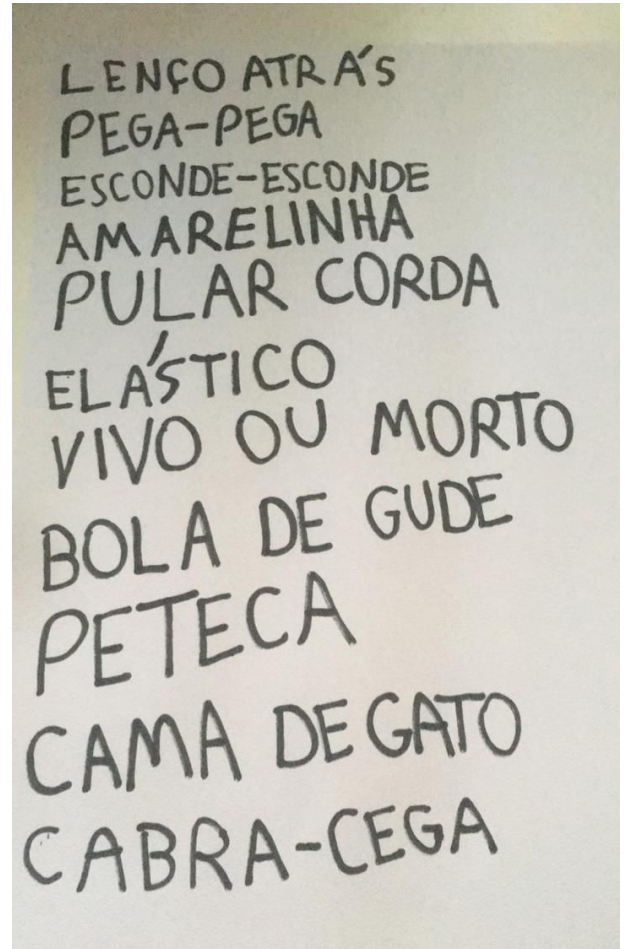 LENÇO ATRÁS
PEGA-PEGA
ESCONDE-ESCONDE
AMARELINHA
PULAR CORDA
ELÁSTICO
VIVO OU MORTO
BOLA DE GUDE
PETECA
CAMA DE GATO
CABRA-CEGA